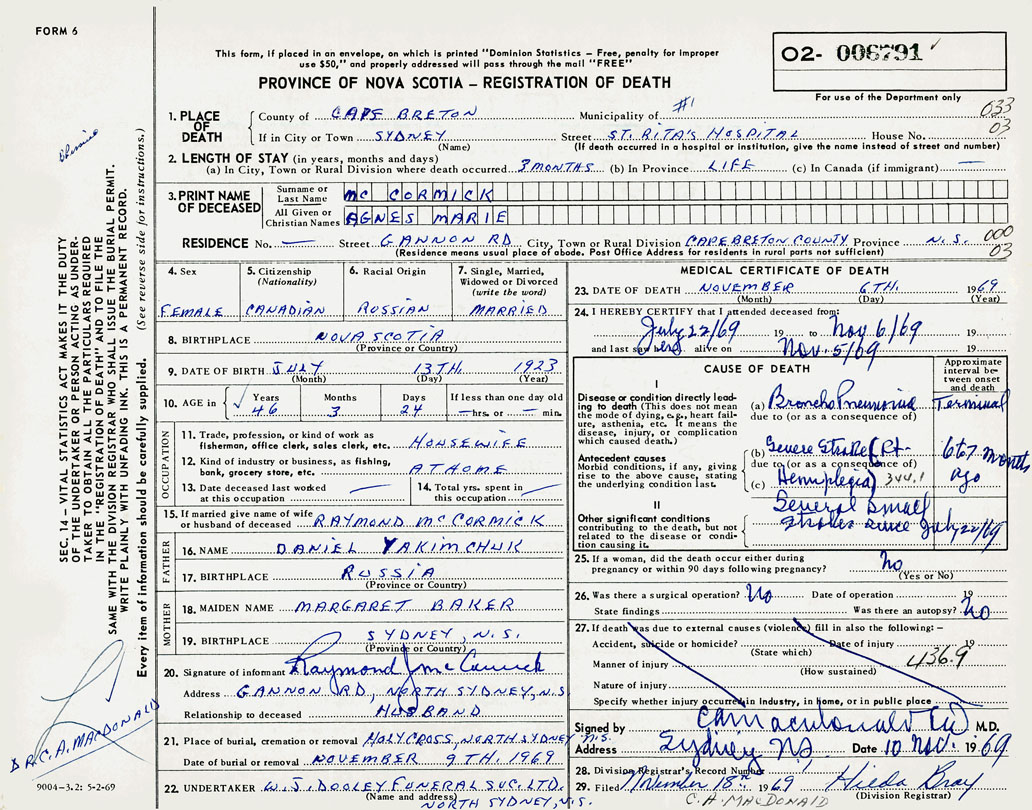 FORM 6
This form, if placed in an envelope, on which is printed "Dominion Statistics – Free, penalty for improper
use $50," and properly addressed will pass through the mail "FREE"
PROVINCE OF NOVA SCOTIA – REGISTRATION OF DEATH
O2- 006791
For use of the Department only
1. PLACE OF DEATH
County of CAPE BRETON Municipality of #1 033
If in City or Town SYDNEY Street ST. RITA'S HOSPITAL House No. 03
(Name) (If death occurred in a hospital or institution, give the name instead of street and number)
2. LENGTH OF STAY (in years, months and days)
(a) In City, Town or Rural Division where death occurred 3 MONTHS (b) In Province LIFE (c) In Canada (if immigrant) —
3. PRINT NAME OF DECEASED
Surname or Last Name Mc CORMICK
All Given or Christian Names AGNES MARIE
RESIDENCE No. — Street GANNON RD City, Town or Rural Division CAPE BRETON COUNTY Province N.S. 000 03
(Residence means usual place of abode. Post Office Address for residents in rural parts not sufficient)
4. Sex
FEMALE
5. Citizenship
(Nationality)
CANADIAN
6. Racial Origin
RUSSIAN
7. Single, Married,
Widowed or Divorced
(write the word)
MARRIED
8. BIRTHPLACE NOVA SCOTIA
(Province or Country)
9. DATE OF BIRTH JULY 13TH. 1923
(Month) (Day) (Year)
10. AGE in Years Months Days If less than one day old
46 3 24 —hrs. or — min.
OCCUPATION
11. Trade, profession, or kind of work as
fisherman, office clerk, sales clerk, etc. HOUSEWIFE
12. Kind of industry or business, as fishing,
bank, grocery store, etc. AT HOME
13. Date deceased last worked
at this occupation —
14. Total yrs. spent in
this occupation —
15. If married give name of wife
or husband of deceased RAYMOND Mc CORMICK
FATHER
16. NAME DANIEL YAKIMCHUK
17. BIRTHPLACE RUSSIA
(Province or Country)
MOTHER
18. MAIDEN NAME MARGARET BAKER
19. BIRTHPLACE SYDNEY, N.S.
(Province or Country)
20. Signature of informant Raymond J McCormick
Address GANNON RD, NORTH SYDNEY, N.S
Relationship to deceased HUSBAND
21. Place of burial, cremation or removal HOLY CROSS, NORTH SYDNEY N.S.
Date of burial or removal NOVEMBER 9TH. 1969
22. UNDERTAKER W.J. DOOLEY FUNERAL SVC. LTD.
(Name and address) NORTH SYDNEY, N.S.
MEDICAL CERTIFICATE OF DEATH
23. DATE OF DEATH NOVEMBER 6TH. 1969
(Month) (Day) (Year)
24. I HEREBY CERTIFY that I attended deceased from:
July 22/69 19 to Nov 6/69 19
and last saw her alive on Nov. 5/69 19
CAUSE OF DEATH
Approximate
interval be-
tween onset
and death
I
Disease or condition directly lead-
ing to death (This does not mean
the mode of dying, e.g., heart fail-
ure, asthenia, etc. It means the
disease, injury, or complication
which caused death.)
(a) Broncho Pneumonia Terminal
due to (or as a consequence of)
Antecedent causes
Morbid conditions, if any, giving
rise to the above condition, stating
the underlying condition last.
(b) Severe Stroke (Rt. 6 to 7 months
due to (or as a consequence of)
(c) Hemiplegia) 344.1 ago
II
Other significant conditions
contributing to the death, but not
related to the disease or condi-
tion causing it.
Several small
strokes since July 22/69
25. If a woman, did the death occur either during
pregnancy or within 90 days following pregnancy? No
(Yes or No)
26. Was there a surgical operation? No Date of operation 19
State findings Was there an autopsy? No
27. If death was due to external causes (violence) fill in also the following: –
Accident, suicide or homicide? Date of injury 19
(State which) 436.9
Manner of injury
(How sustained)
Nature of injury
Specify whether injury occurred in industry, in home, or in public place
Signed by C A MacDonald M.D.
Address Sydney NS Date 10 Nov. 1969
28. Division Registrar's Record Number
29. Filed November 18th 1969 Hilda Bray
C. A. MACDONALD (Division Registrar)
SEC. 14 – VITAL STATISTICS ACT MAKES IT THE DUTY
OF THE UNDERTAKER OR PERSON ACTING AS UNDER-
TAKER TO OBTAIN ALL THE PARTICULARS REQUIRED
IN THE "REGISTRATION OF DEATH" AND TO FILE THE
SAME WITH THE DIVISION REGISTRAR WHO SHALL ISSUE THE BURIAL PERMIT.
WRITE PLAINLY WITH UNFADING INK. THIS IS A PERMANENT RECORD.
Every item of information should be carefully supplied. (See reverse side for instructions.)
DR. C. A. MACDONALD
9004–3.2: 5-2-69